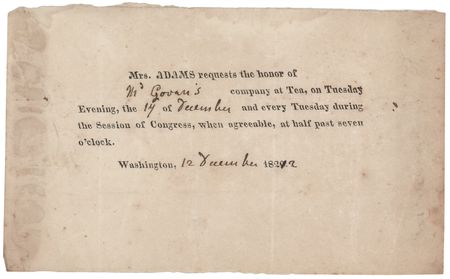 Mrs. ADAMS requests the honor of
Mr Govan's company at Tea, on Tuesday
Evening, the 17 of December and every Tuesday during
the Session of Congress, when agreeable, at half past seven
o'clock.
Washington, 12 December 1822